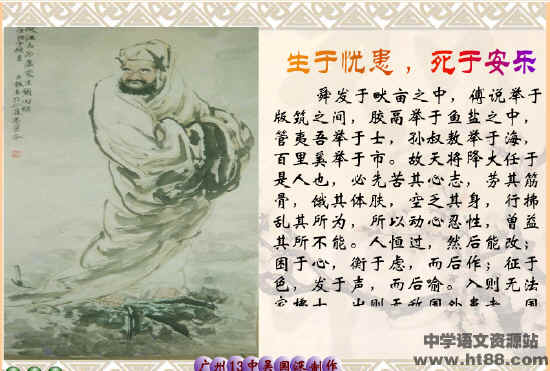 生于忧患，死于安乐
舜发于畎亩之中，傅说举于
版筑之间，胶鬲举于鱼盐之中，
管夷吾举于士，孙叔敖举于海，
百里奚举于市。故天将降大任于
是人也，必先苦其心志，劳其筋
骨，饿其体肤，空乏其身，行拂
乱其所为，所以动心忍性，曾益
其所不能。人恒过，然后能改；
困于心，衡于虑，而后作；征于
色，发于声，而后喻。入则无法
家拂士，出则无敌国外患者，国
中学语文资源站
www.ht88.com
广州13中吴国深制作